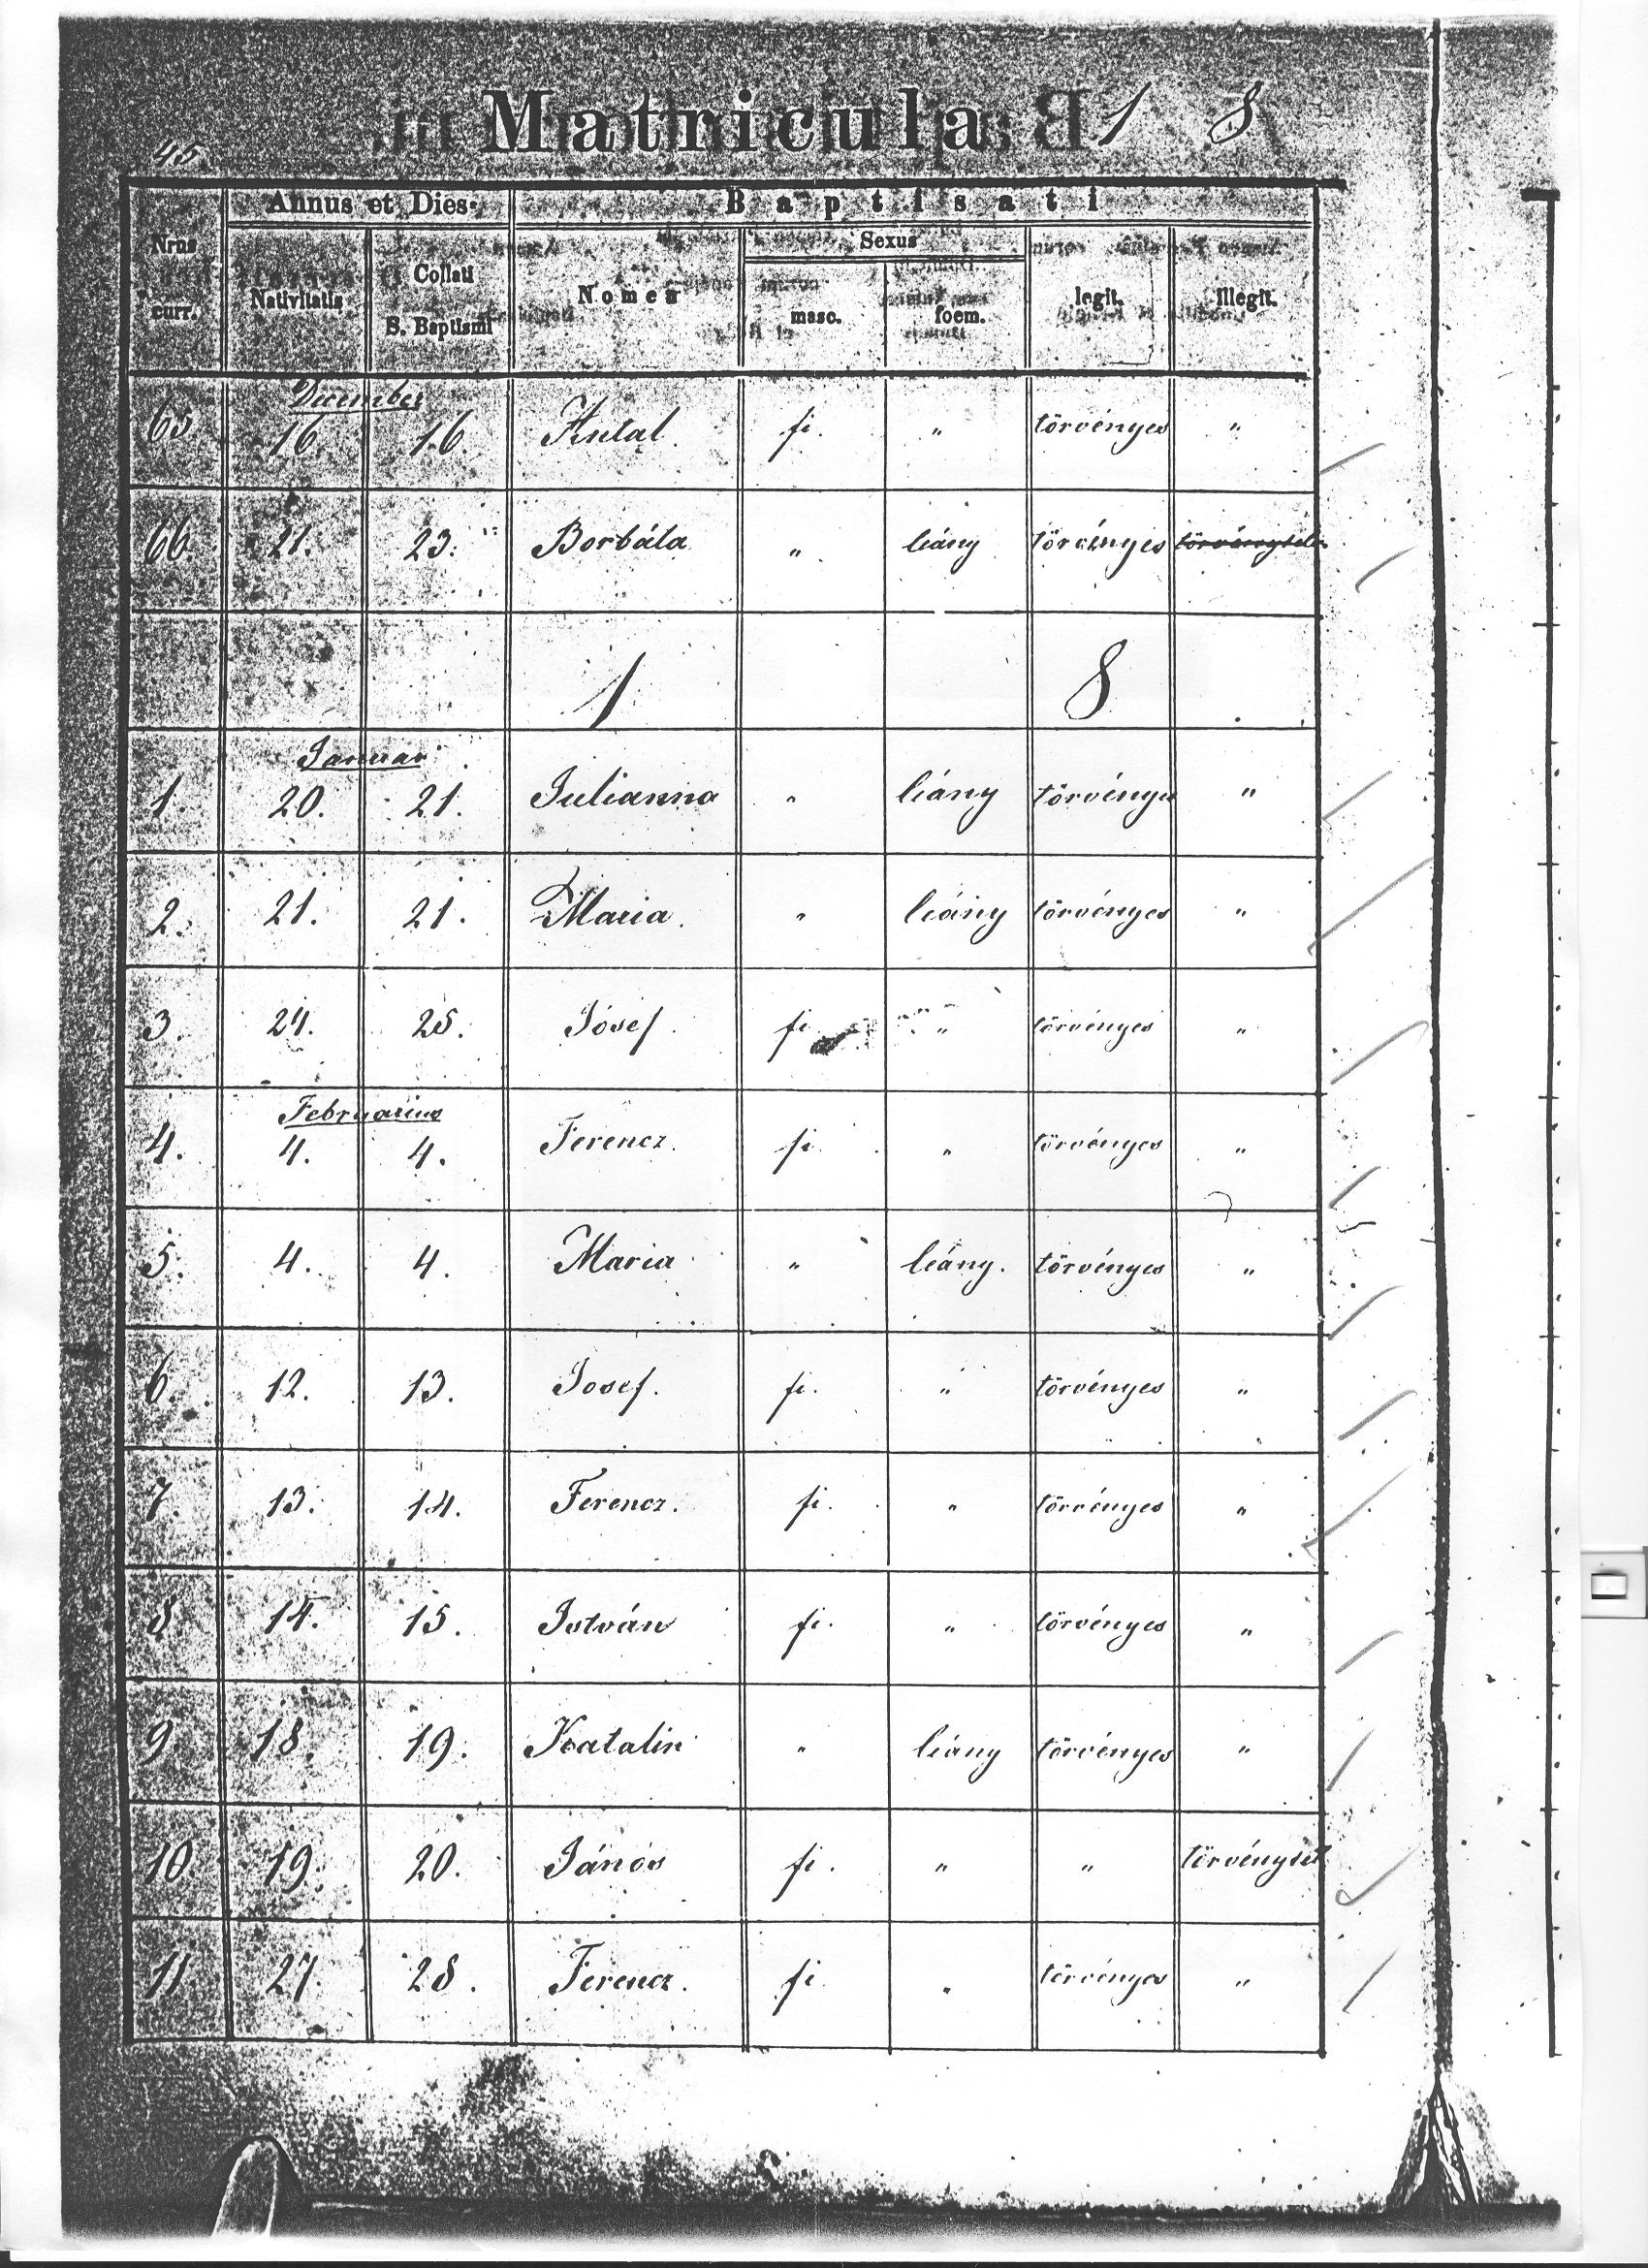 Matricula 1 8
45
Annus et Dies Baptisati
Nrus curr. Nativitatis Collati S. Baptismi Nomen Sexus masc. foem. legit. illegit.
December
65 16. 16. Antal. fi. " törvényes "
66. 21. 23. Borbála " leány törvényes
1 8
Januar
1 20. 21. Julianna " leány törvényes "
2. 21. 21. Maria. " leány törvényes "
3. 24. 25. Jósef. fi. " törvényes "
Februarius
4. 4. 4. Ferencz. fi. " törvényes "
5. 4. 4. Maria " leány. törvényes "
6. 12. 13. Josef. fi. " törvényes "
7. 13. 14. Ferencz. fi. " törvényes "
8 14. 15. István fi. " törvényes "
9 18. 19. Katalin " leány törvényes "
10 19. 20. János fi. " " törvénytel
11 27. 28. Ferencz. fi. " törvényes "